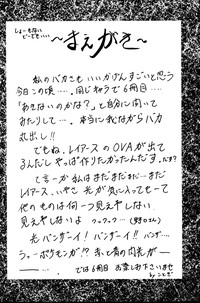 しょーもない
どーでもいい
〜まえがき〜
私のバカさもいいかげんすごいと思う
今日この頃‥‥。同じネタで6冊目‥‥
「あきないのかな？」と自分に聞いて
みたりして‥‥本当に我ながらバカ
丸出し!!
でもね、レイアースのOVAが出て
るんだしやっぱ作りたかったんだす。
て言ーか私はまだまだまだ…まだ
レイアース、いやさ 光が気に入ってまて
他のものは何一つ見えやしない
見えやしないよ フッフッフ…
光バンザーイ! バンザーイ!! バンザ‥‥
らー ポケモンが!? 赤と青の閃光が―
―‥‥。では6冊目 お楽しみ下さいませ
by